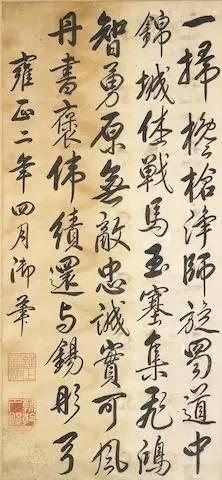 一掃欃槍淨師旋蜀道中
錦城休戰馬玉塞集飛鴻
智勇原無敵忠誠實可風
丹書褒偉績還与錫彤弓
雍正二年四月御筆